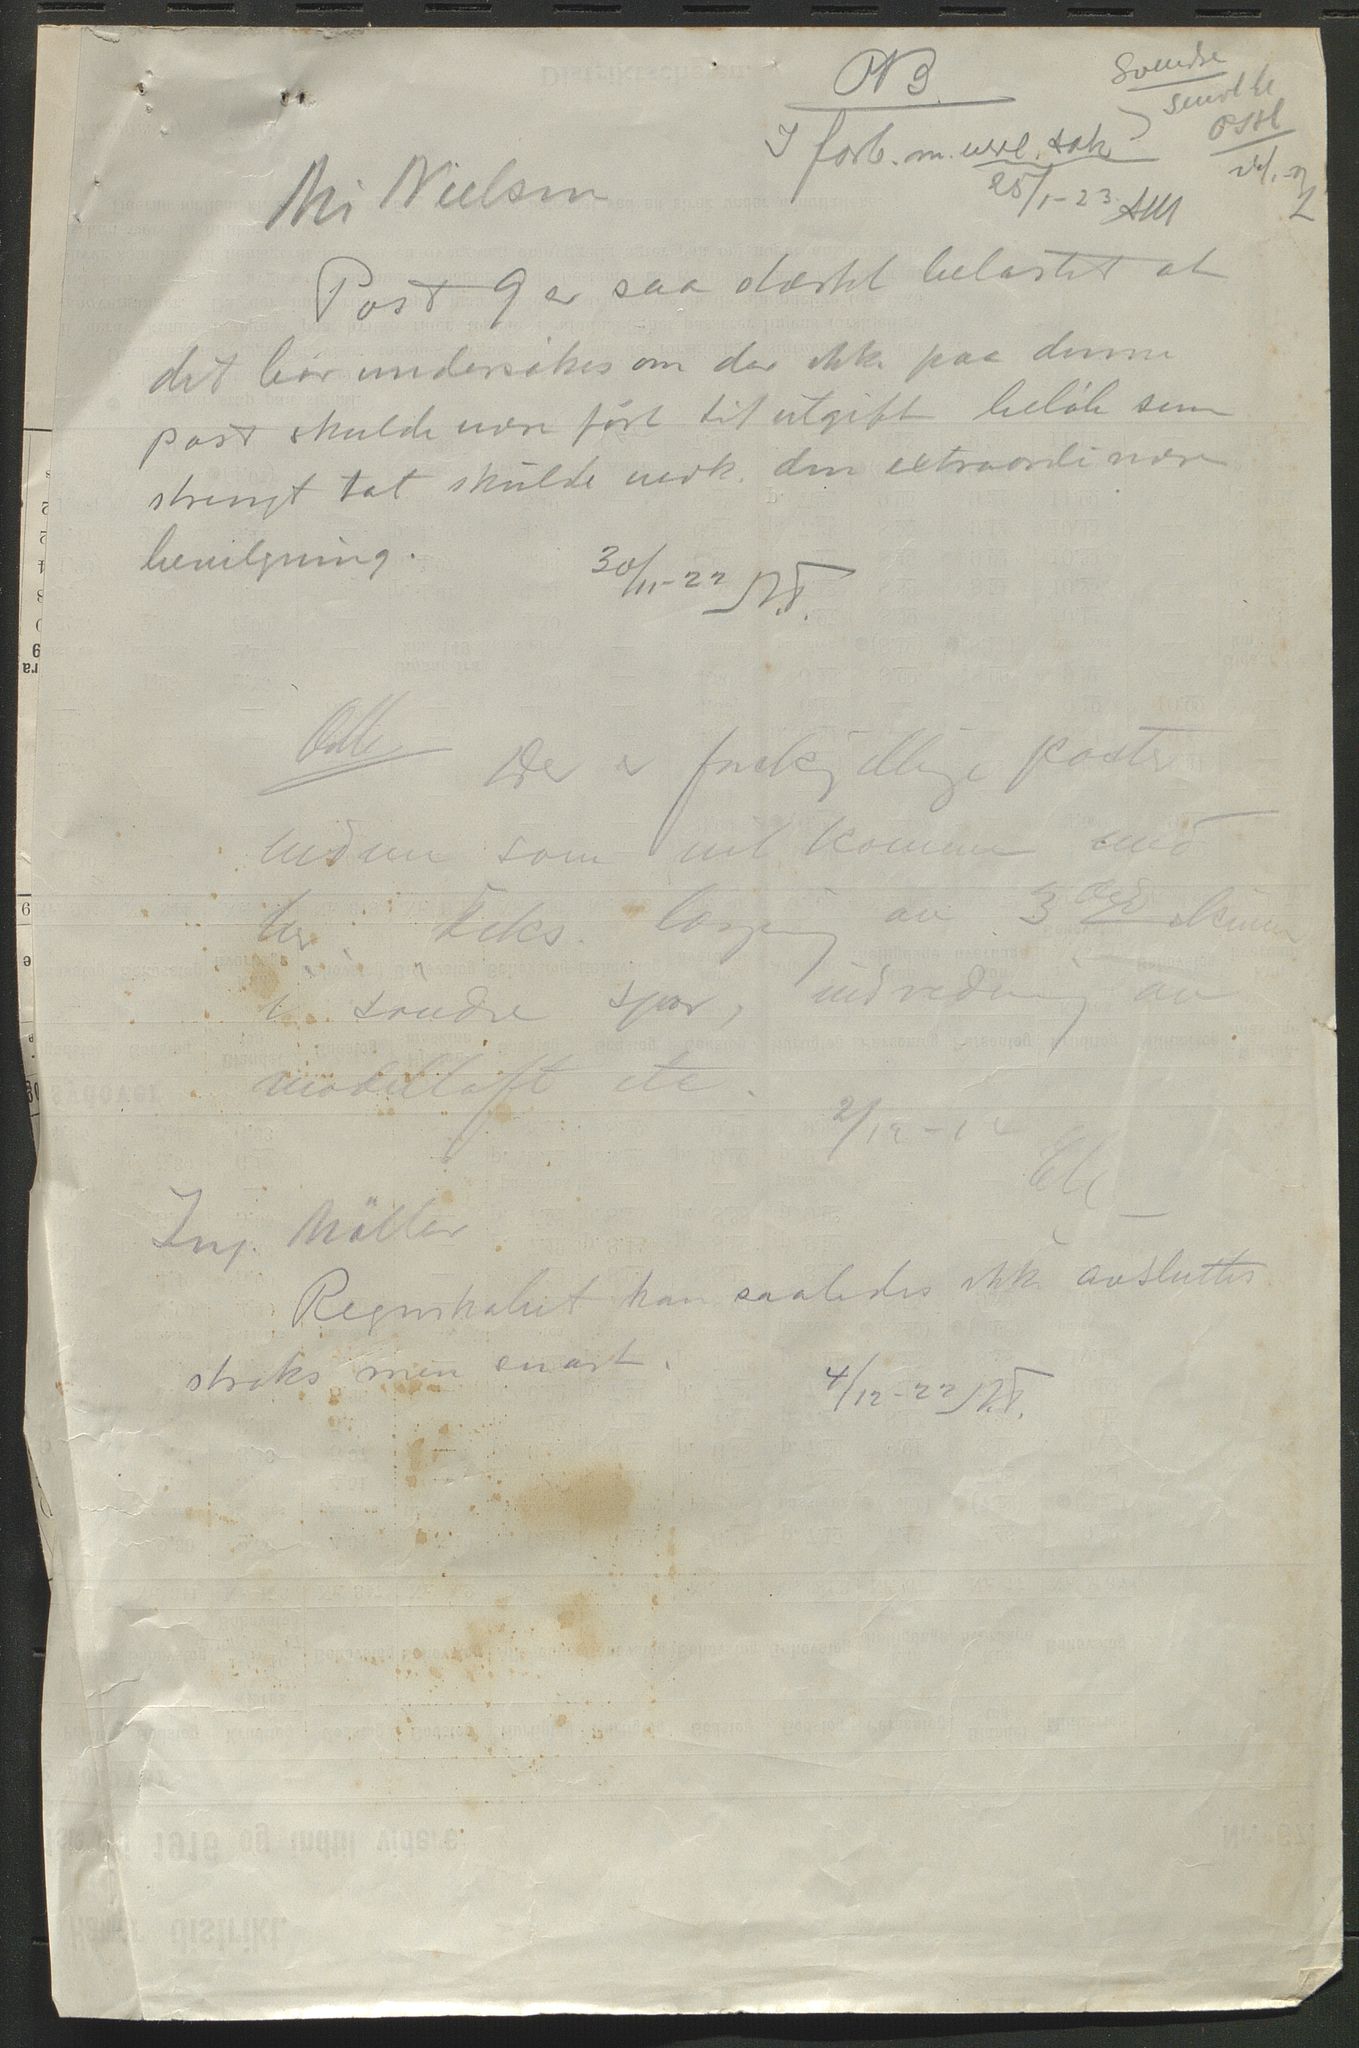 NB.
I forb. m. vedl. sak
25/1-23 AM
Søndre
Nielsen
Post 9 er saa stærkt belastet at
det bør undersøkes om der ikke paa denne
post skulde være ført til utgift beløb som
strengt tat skulde vedk. den extraordinære
bevilgning.
30/11-22 N.T.
Der er forskjellige poster
som vil komme med
her. f.eks. av 3 skinner
i søndre spor, indredning av
modelloft etc.
2/12-22
Ing. Møller
Regnskabet kan saaledes ikke avsluttes
straks men snart.
4/12-22 N.T.